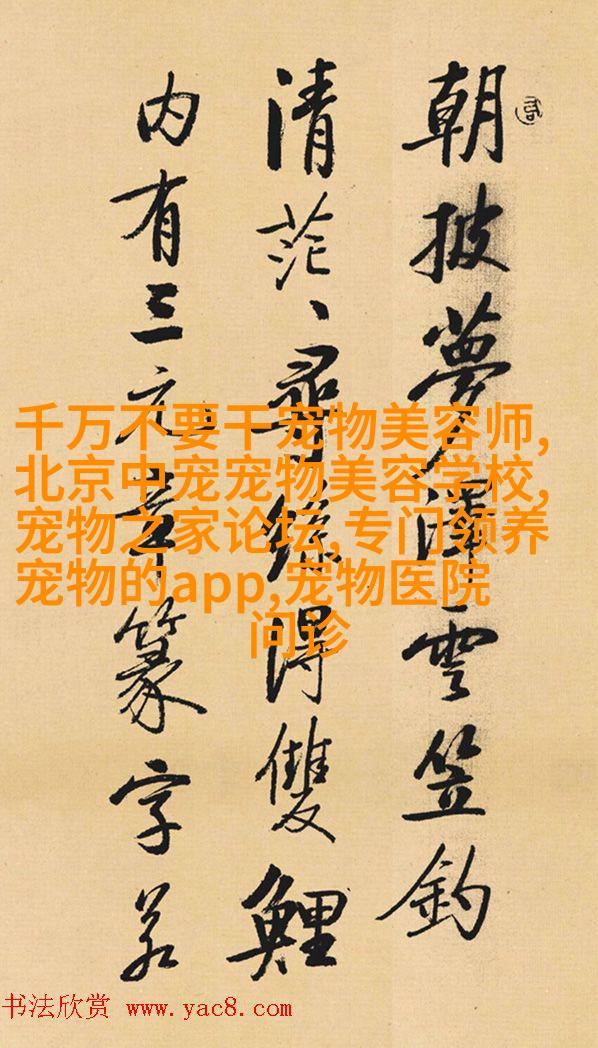 朝披夢澤雲笠釣
清茫、尋絲得雙鯉
内有三元章篆字若
千万不要干宠物美容师,
北京中宠宠物美容学校,
宠物之家论坛,专门领养
宠物的app,宠物医院
问诊
书法欣赏 www.yac8.com